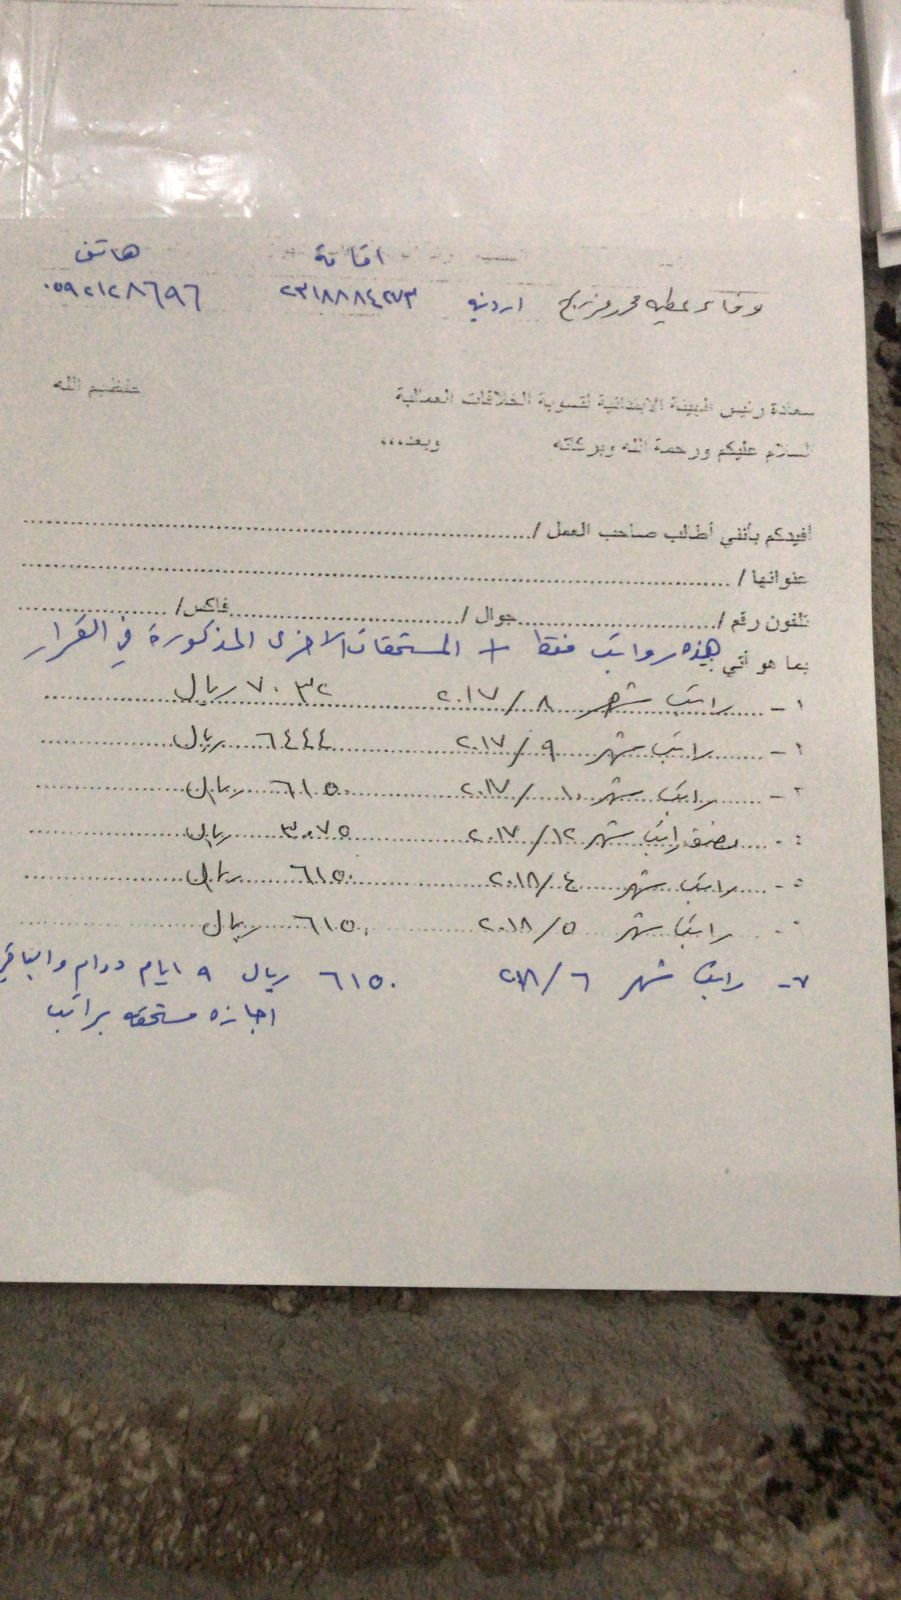 اقامة هاتف
وفاء عطيه محمد اردنيه ٢٣١٨٨٨٤٢٧٣ ٠٥٩٢١٢٨٦٩٦
سعادة رئيس الهيئة الابتدائية لتسوية الخلافات العمالية حفظهم الله
السلام عليكم ورحمة الله وبركاته وبعد،،،
أفيدكم بأنني أطالب صاحب العمل /
عنوانها /
تلفون رقم / جوال / فاكس/
بما هو آتي : هذه رواتب فقط + المستحقات الاخرى المذكورة في القرار
١ - راتب شهر ٨ / ٢٠١٧ ٧٠٣٢ ريال
٢ - راتب شهر ٩ / ٢٠١٧ ٦٤٤٤ ريال
٣ - راتب شهر ١٠ / ٢٠١٧ ٦١٥٠ ريال
٤ - نصف راتب شهر ١٢ / ٢٠١٧ ٣٠٧٥ ريال
٥ - راتب شهر ٤ / ٢٠١٨ ٦١٥٠ ريال
٦ - راتب شهر ٥ / ٢٠١٨ ٦١٥٠ ريال
٧ - راتب شهر ٦ / ٢٠١٨ ٦١٥٠ ريال ٩ ايام دوام والباقي
اجازه مستحقه براتب